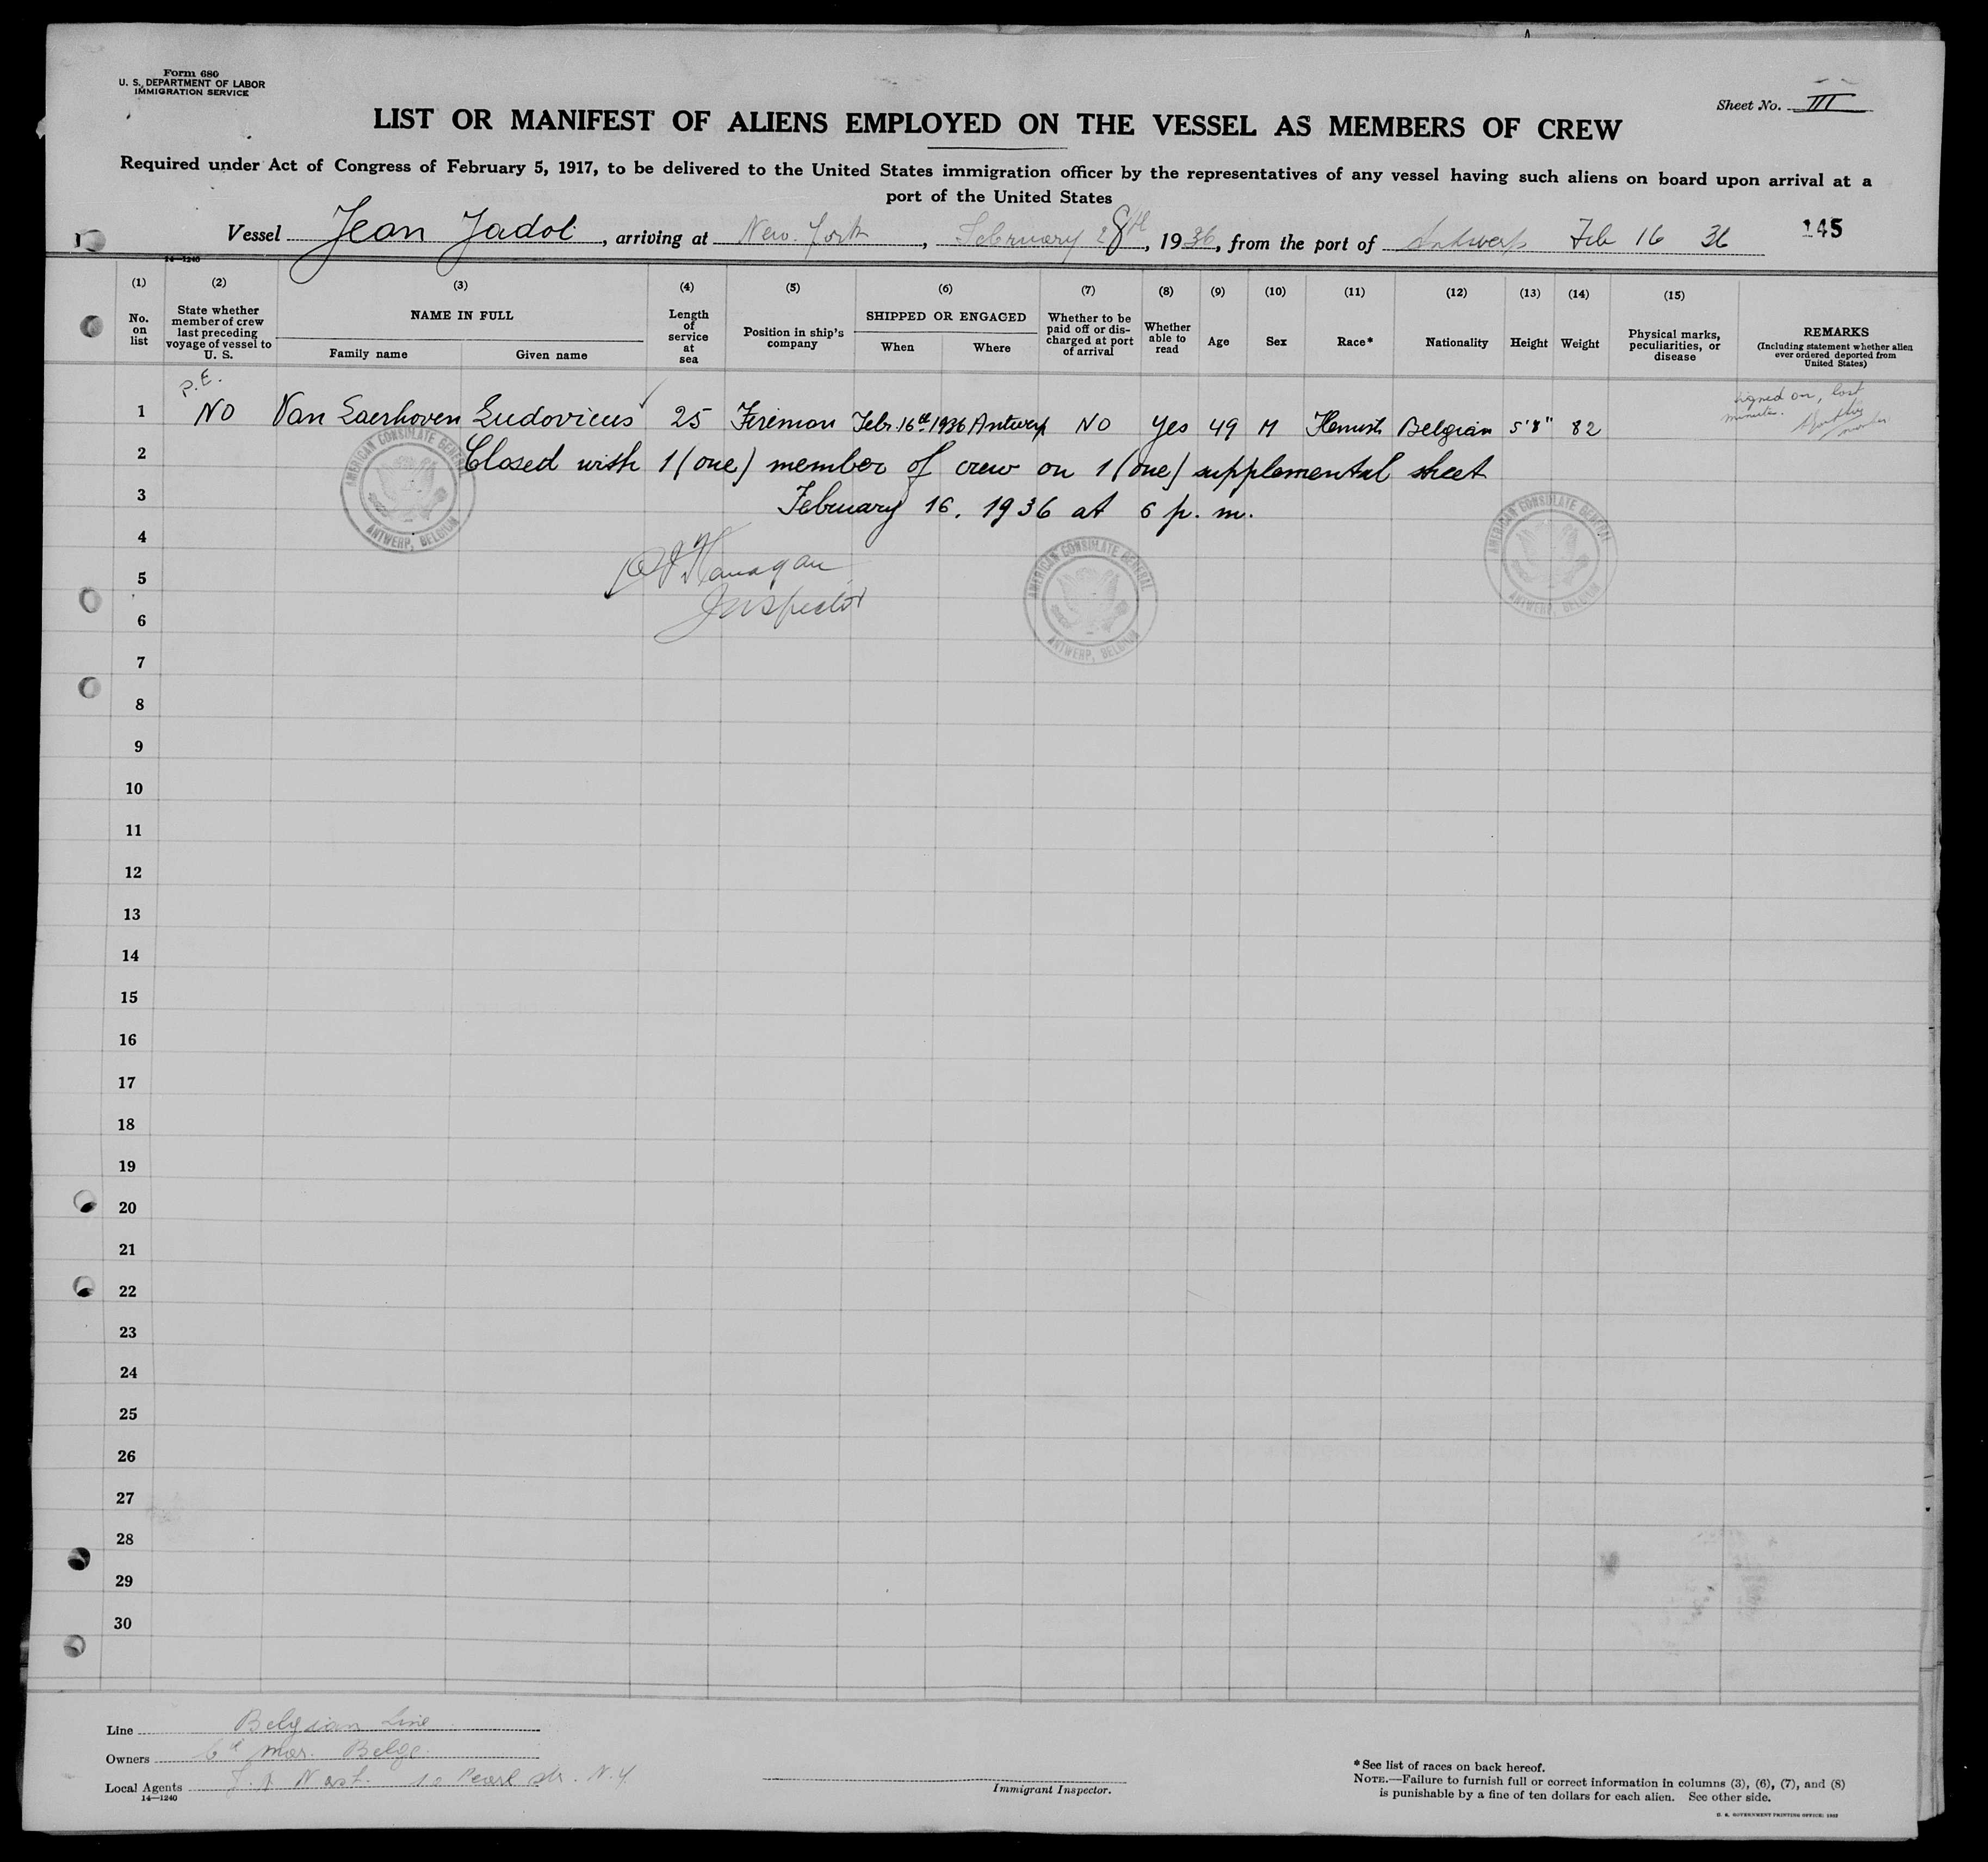 Form 680
U. S. DEPARTMENT OF LABOR
IMMIGRATION SERVICE
Sheet No. III
LIST OR MANIFEST OF ALIENS EMPLOYED ON THE VESSEL AS MEMBERS OF CREW
Required under Act of Congress of February 5, 1917, to be delivered to the United States immigration officer by the representatives of any vessel having such aliens on board upon arrival at a
port of the United States
Vessel Jean Jadot, arriving at New York, February 28th, 1936, from the port of Antwerp Feb 16 36 145
14—1240
(1) (2) (3) (4) (5) (6) (7) (8) (9) (10) (11) (12) (13) (14) (15)
No. on list
State whether member of crew last preceding voyage of vessel to U. S.
NAME IN FULL
Family name Given name
Length of service at sea
Position in ship's company
SHIPPED OR ENGAGED
When Where
Whether to be paid off or discharged at port of arrival
Whether able to read
Age
Sex
Race*
Nationality
Height
Weight
Physical marks, peculiarities, or disease
REMARKS
(Including statement whether alien ever ordered deported from United States)
P.E.
1 NO Van Laerhoven Ludovicus 25 Fireman Febr. 16th 1936 Antwerp NO Yes 49 M Flemish Belgian 5'8" 82
signed on, last
minute.
2 Closed with 1 (one) member of crew on 1 (one) supplemental sheet
3 February 16, 1936 at 6 p. m.
AMERICAN CONSULATE GENERAL
ANTWERP, BELGIUM
AMERICAN CONSULATE GENERAL
ANTWERP, BELGIUM
AMERICAN CONSULATE GENERAL
ANTWERP, BELGIUM
4
Flanagan
5
Inspector
6
7
8
9
10
11
12
13
14
15
16
17
18
19
20
21
22
23
24
25
26
27
28
29
30
Line Belgian Line
Owners Cie Mar. Belge.
Local Agents 10 Pearl str. N.Y.
14—1240
Immigrant Inspector.
* See list of races on back hereof.
NOTE.—Failure to furnish full or correct information in columns (3), (6), (7), and (8)
is punishable by a fine of ten dollars for each alien. See other side.